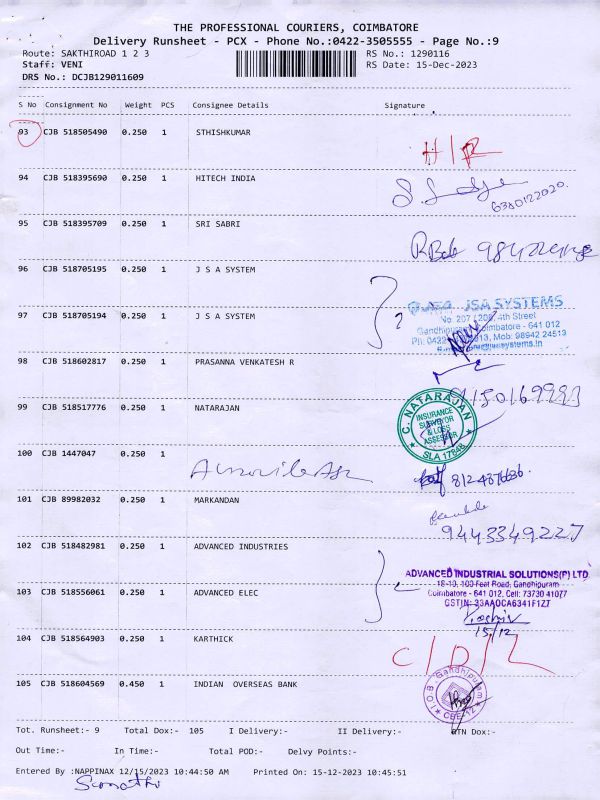 THE PROFESSIONAL COURIERS, COIMBATORE
Delivery Runsheet - PCX - Phone No.:0422-3505555 - Page No.:9
Route: SAKTHIROAD 1 2 3 RS No.: 1290116
Staff: VENI RS Date: 15-Dec-2023
DRS No.: DCJB129011609
S No Consignment No Weight PCS Consignee Details Signature
93 CJB 518505490 0.250 1 STHISHKUMAR
94 CJB 518395690 0.250 1 HITECH INDIA
6380122020.
95 CJB 518395709 0.250 1 SRI SABRI
96 CJB 518705195 0.250 1 J S A SYSTEM
JSA SYSTEMS
97 CJB 518705194 0.250 1 J S A SYSTEM
4th Street
Coimbatore - 641 012
Mob: 98942 24513
98 CJB 518602817 0.250 1 PRASANNA VENKATESH R
9150169993
99 CJB 518517776 0.250 1 NATARAJAN
C. NATARAJAN
INSURANCE
SURVEYOR
& LOSS
ASSESSOR
SLA 17848
100 CJB 1447047 0.250 1
101 CJB 89982032 0.250 1 MARKANDAN
9443349227
102 CJB 518482981 0.250 1 ADVANCED INDUSTRIES
ADVANCED INDUSTRIAL SOLUTIONS(P) LTD
103 CJB 518556061 0.250 1 ADVANCED ELEC
18-19, 100 Feet Road, Gandhipuram
Coimbatore - 641 012, Cell: 73730 41077
GSTIN: 33AAOCA6341F1Z7
15/12
104 CJB 518564903 0.250 1 KARTHICK
C/D/L
105 CJB 518604569 0.450 1 INDIAN OVERSEAS BANK
I.O.B. Gandhipuram
CBE-12
Tot. Runsheet:- 9 Total Dox:- 105 I Delivery:- II Delivery:- RTN Dox:-
Out Time:- In Time:- Total POD:- Delvy Points:-
Entered By :NAPPINAX 12/15/2023 10:44:50 AM Printed On: 15-12-2023 10:45:51
Sumathi